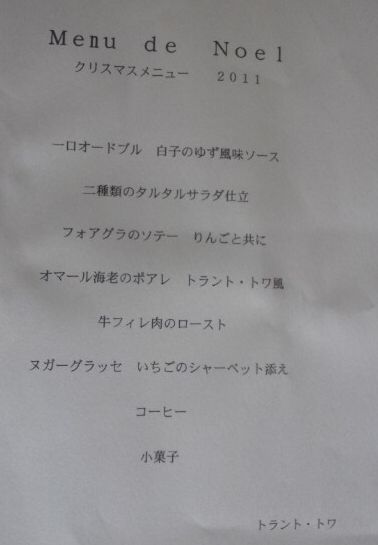 Menu de Noel
クリスマスメニュー 2011
一口オードブル 白子のゆず風味ソース
二種類のタルタルサラダ仕立
フォアグラのソテー りんごと共に
オマール海老のポアレ トラント・トワ風
牛フィレ肉のロースト
ヌガーグラッセ いちごのシャーベット添え
コーヒー
小菓子
トラント・トワ